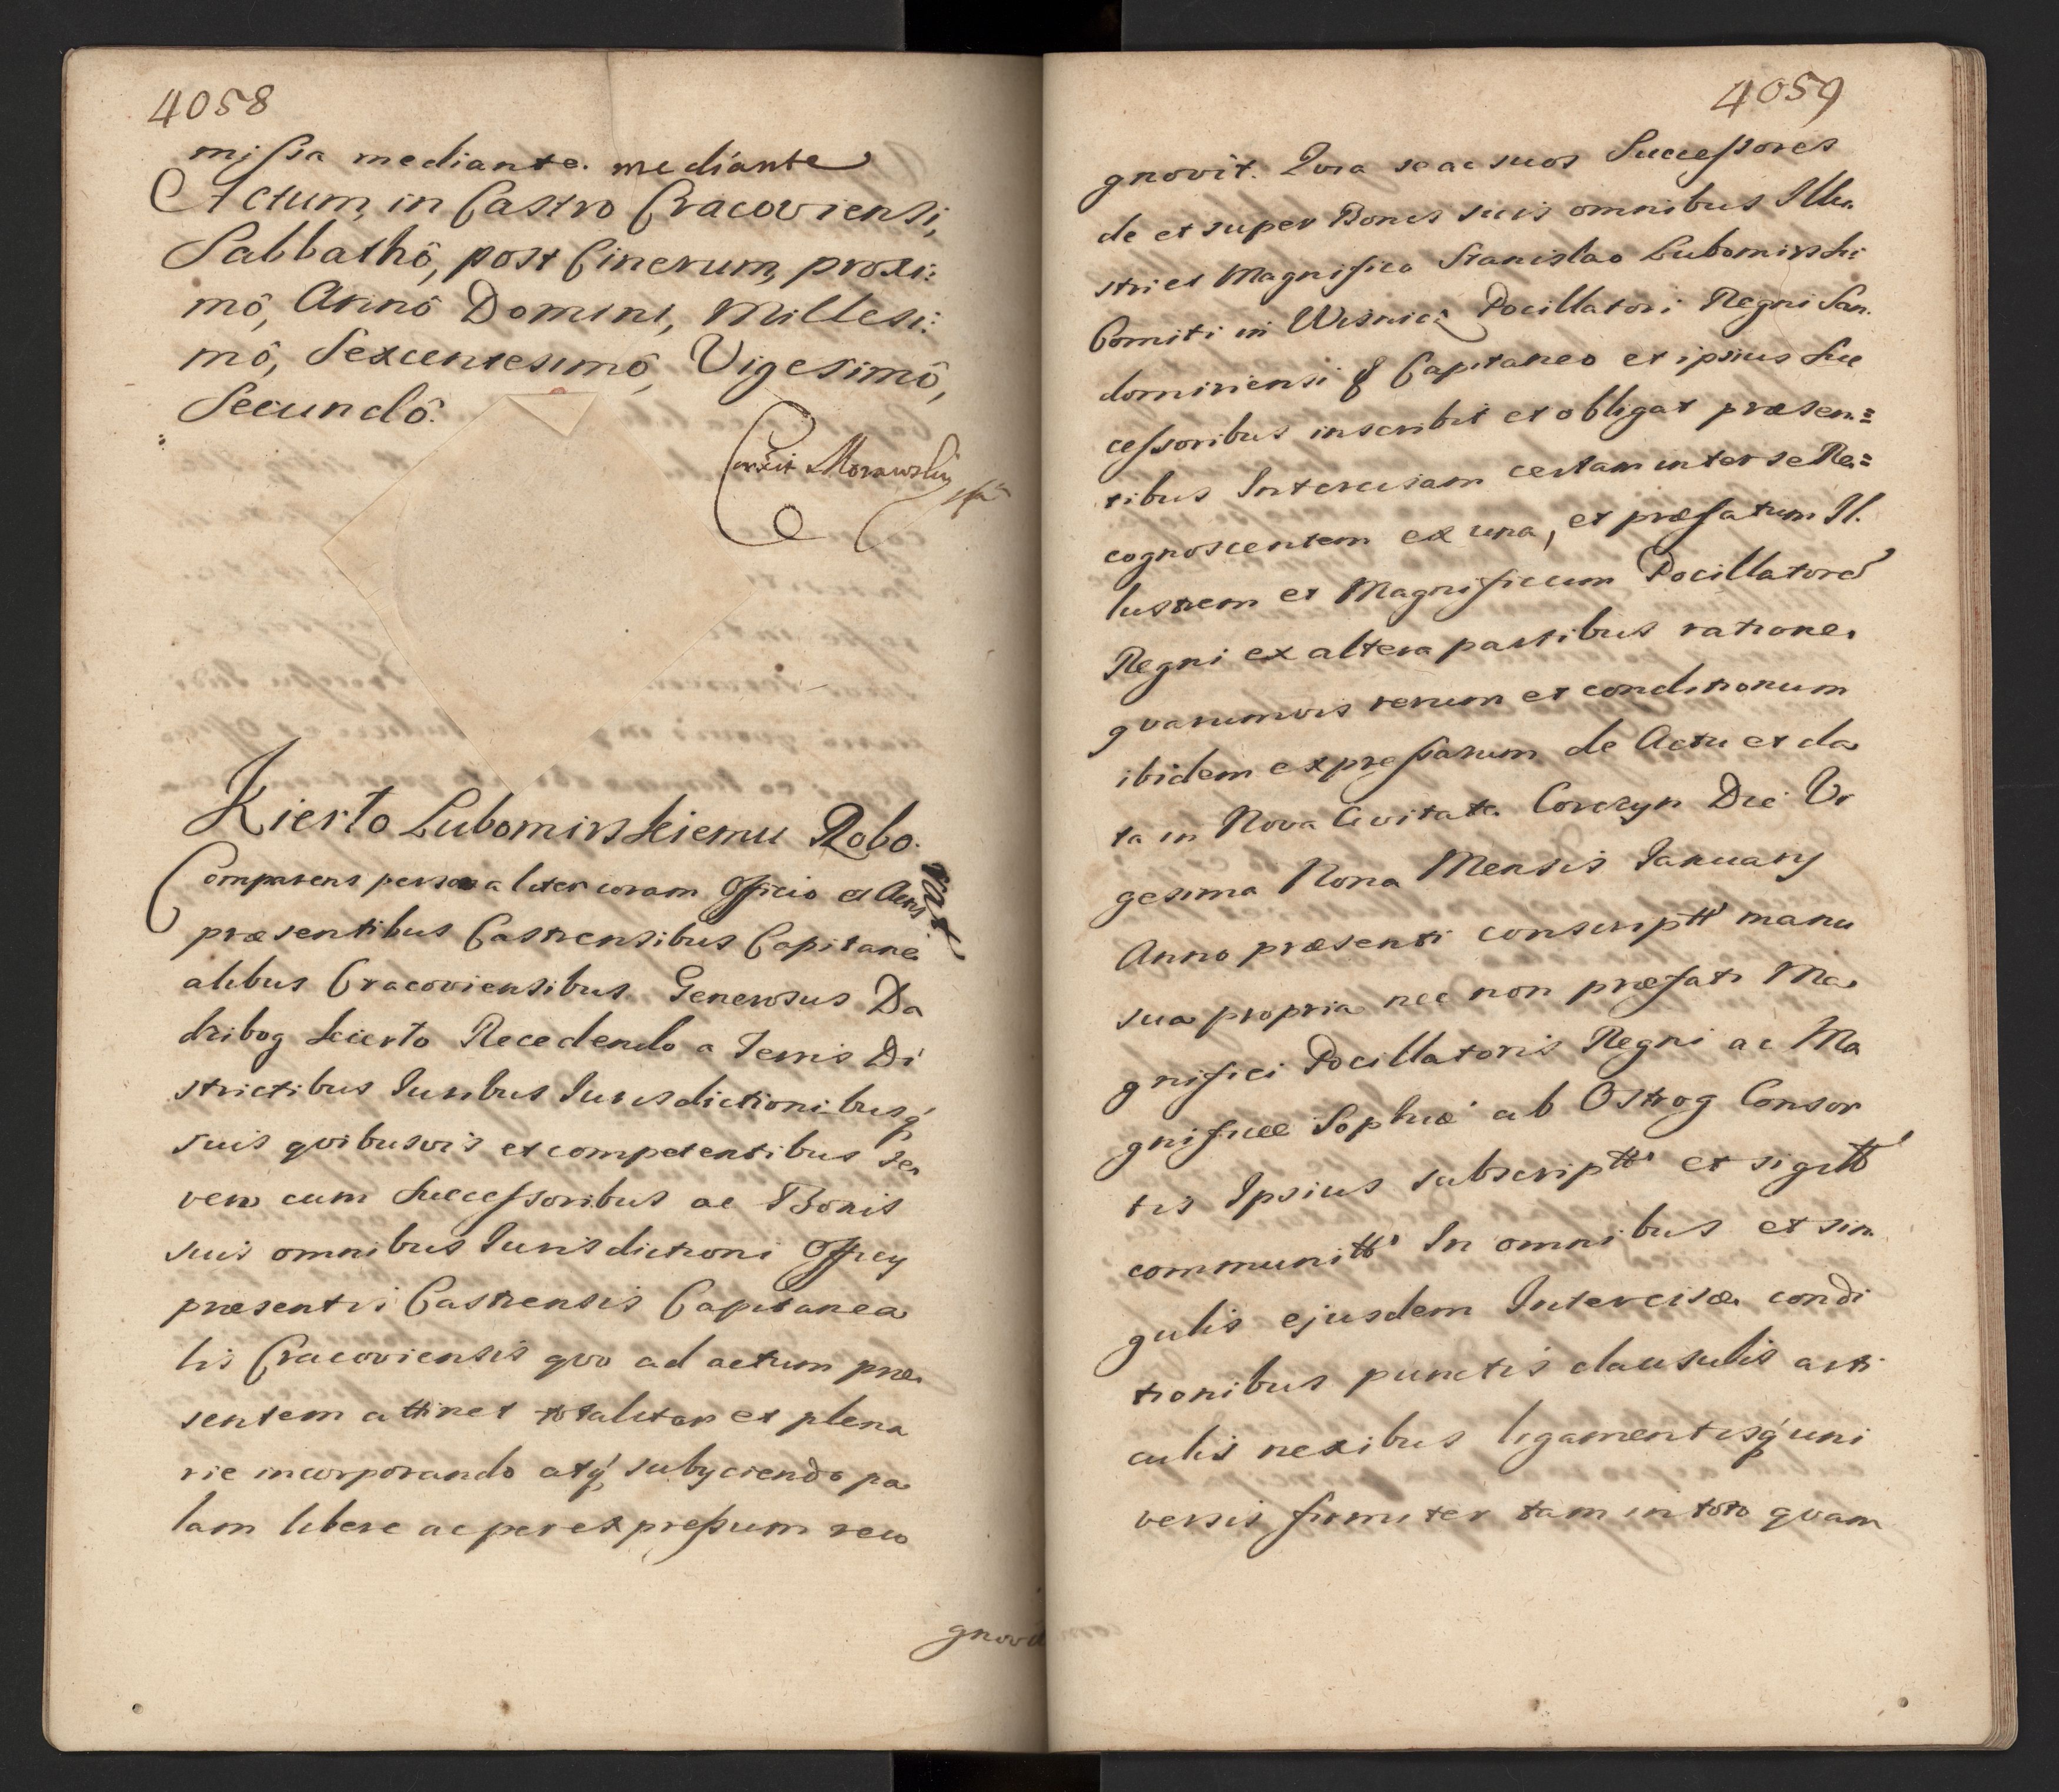 4058
missa mediante. mediante
Actum, in Castro Cracoviensi,
Sabbathô, post Cinerum, proxi:
mô, Annô Domini, Millesi:
mô, Sexcentesimô, Vigesimô,
Secundô.
Correxit Morawski
Kierło Lubomirskiemu Robo.
rat
Comparens personaliter coram Officio et Actis
præsentibus Castrensibus Capitane
alibus Cracoviensibus Generosus Da
dzibog Kierło Recedendo a Terris Di
strictibus Iuribus Iurisdictionibusq́
suis qvibusvis et competentibus se
vero cum Successoribus ac Bonis
suis omnibus Iurisdictioni Officy
præsentis Castrensis Capitanea
lis Cracoviensis qvo ad actum præ
sentem attinet totaliter et plena
rie incorporando atq́ subyciendo pa
lam libere ac per expressum reco
gnovit
4059
gnovit. Qvia se ac suos Successores
de et super Bonis suis omnibus Illu
stri et Magnifico Stanislao Lubomirski
Comiti in Wisnicz Pocillatori Regni San
domiriensi & Capitaneo et ipsius Suc
cessoribus inscribit et obligat præsen=
tibus Intercisam certam inter se Re=
cognoscentem ex una, et præfatum Il.
lustrem et Magnificum Pocillatorẽ
Regni ex altera partibus ratione
qvarumvis rerum et conditionum
ibidem expressarum de Actu et da
ta in Nova Civitate Corczyn Die Vi
gesima Nona Mensis January
Anno præsenti conscriptt manu
sua propria nec non præfati Ma
gnifici Pocillatoris Regni ac Ma
gnificæ Sophiæ ab Ostrog Consor
tis Ipsius subscriptt et sigilt
communitt In omnibus et sin
gulis ejusdem Intercisæ condi
tionibus punctis clausulis arti
culis nexibus ligamentisq́ uni
versis firmiter tam in toto qvam